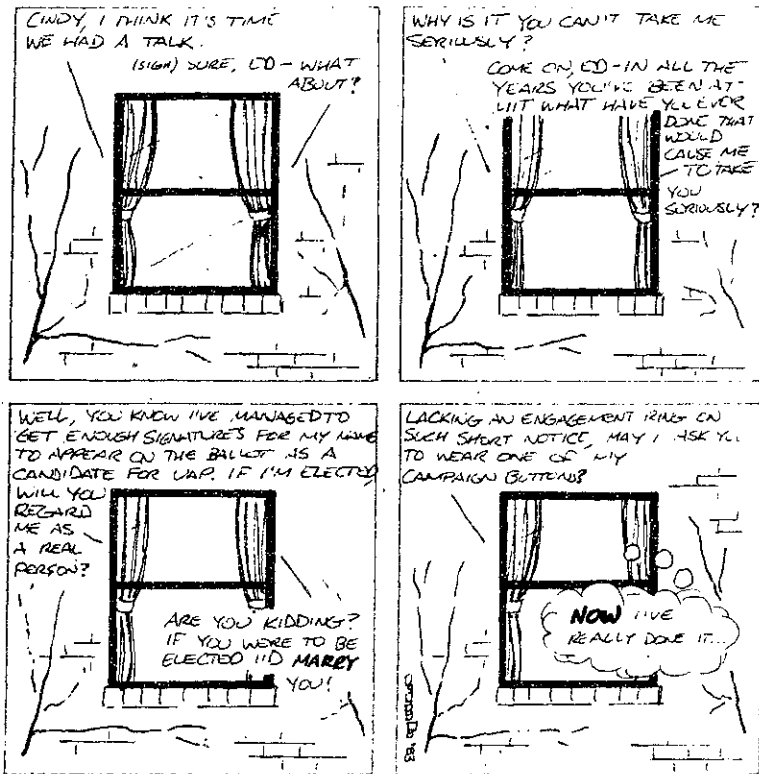 CINDY, I THINK IT'S TIME
WE HAD A TALK.
(SIGH) SURE, ED - WHAT
ABOUT?
WHY IS IT YOU CAN'T TAKE ME
SERIOUSLY?
COME ON, ED - IN ALL THE
YEARS YOU'VE BEEN AT
WHAT HAVE YOU EVER
DONE THAT
WOULD
CAUSE ME
TO TAKE
YOU
SERIOUSLY?
WELL, YOU KNOW I'VE MANAGED TO
GET ENOUGH SIGNATURES FOR MY NAME
TO APPEAR ON THE BALLOT AS A
CANDIDATE FOR UAP. IF I'M ELECTED,
WILL YOU
REGARD
ME AS
A REAL
PERSON?
ARE YOU KIDDING?
IF YOU WERE TO BE
ELECTED I'D MARRY
YOU!
LACKING AN ENGAGEMENT RING ON
SUCH SHORT NOTICE, MAY I ASK YOU
TO WEAR ONE OF MY
CAMPAIGN BUTTONS?
NOW I'VE
REALLY DONE IT...
'83